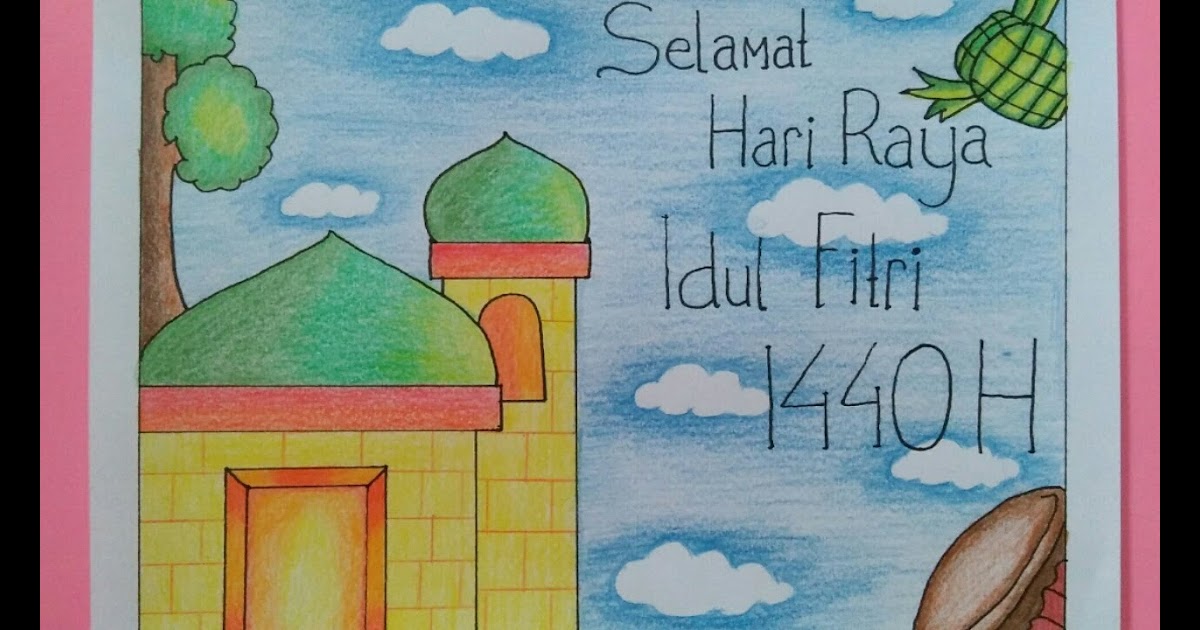 Selamat
Hari Raya
Idul Fitri
1440 H